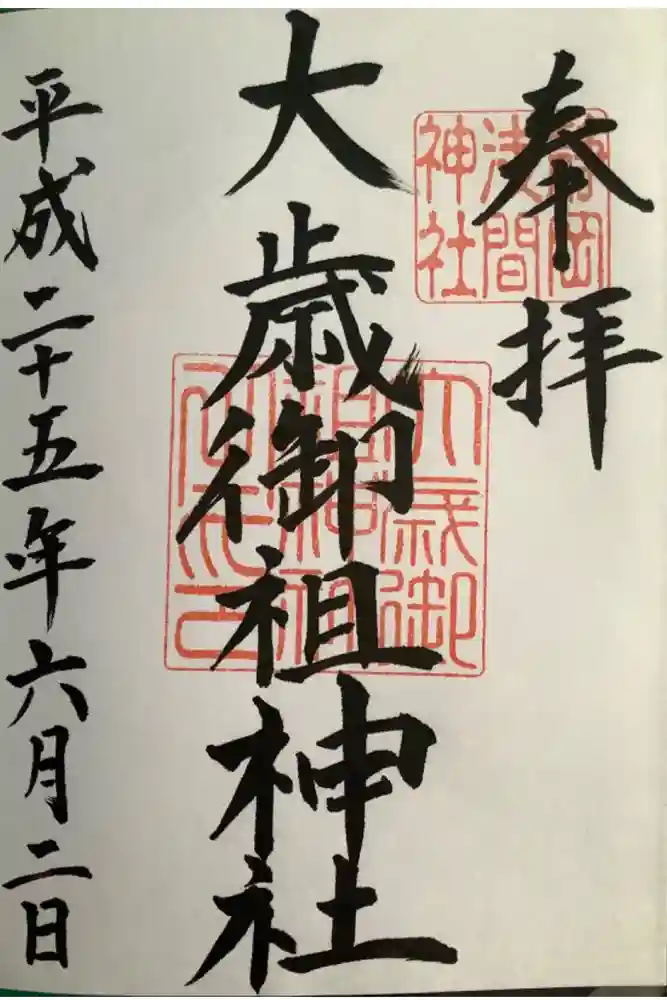 奉拝
静岡
浅間
神社
大歳御祖神社
大歳御
祖神社
平成二十五年六月二日